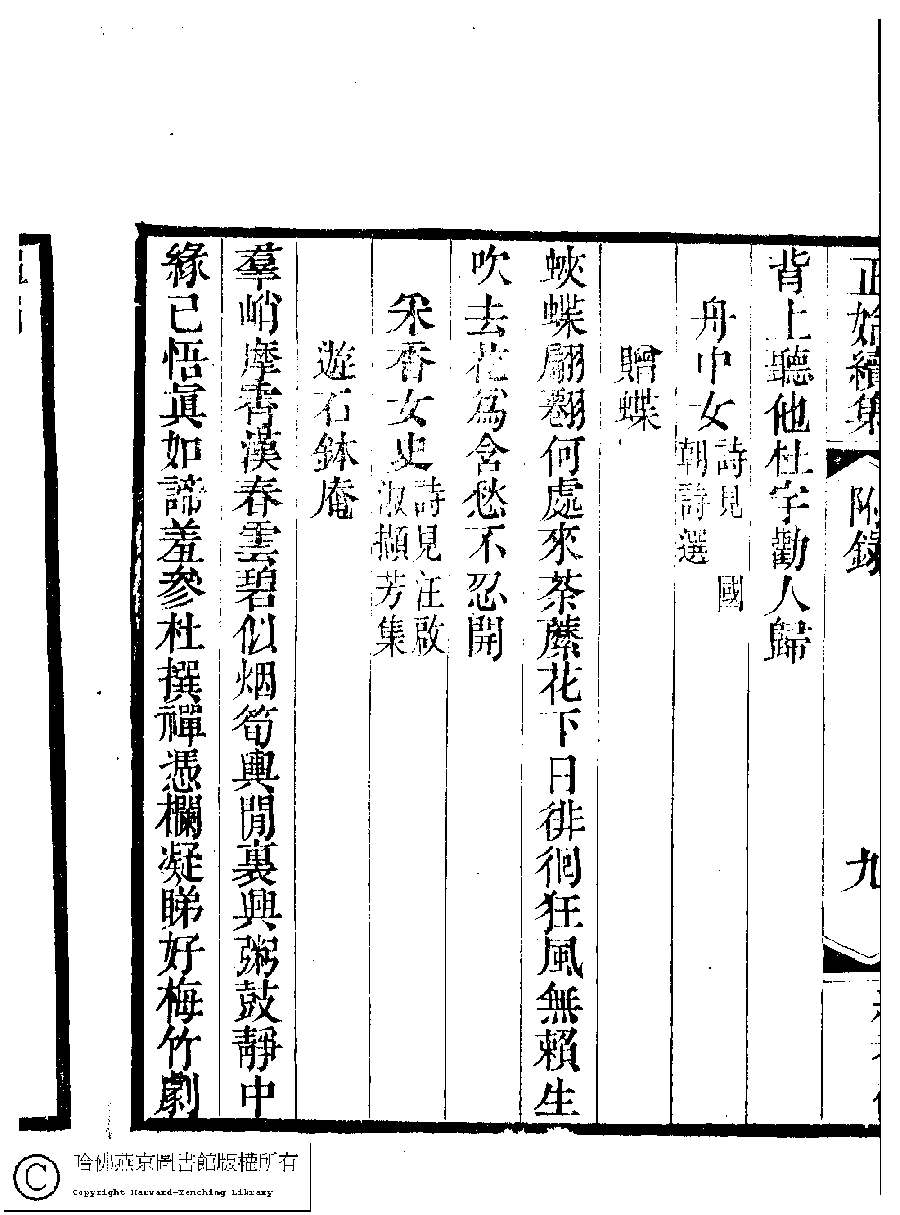 正始續集 附錄 九
背上聽他杜宇勸人歸
舟中女詩見 國朝詩選
贈蝶
蛺蝶翩翻何處來荼蘼花下日徘徊狂風無賴生
吹去花爲含愁不忍開
采香女史詩見汪啟淑擷芳集
遊石鉢庵
羣峭摩霄漢春雲碧似烟筍輿閒裏興粥鼓靜中
緣已悟眞如諦羞參杜撰禪憑欄凝睇好梅竹劇
哈佛燕京圖書館版權所有
Copyright Harvard-Yenching Library